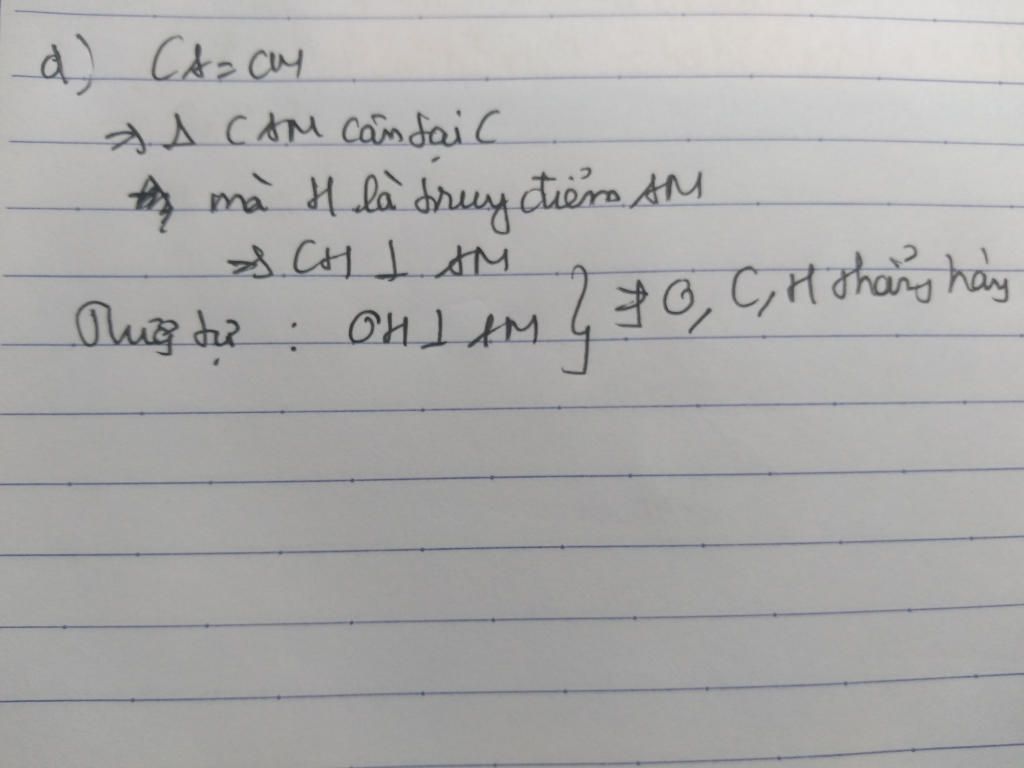 d) CA = CM
=> Δ CAM cân tại C
mà H là trung điểm AM
=> CH ⊥ AM
Tương tự : OH ⊥ AM } => O, C, H thẳng hàng